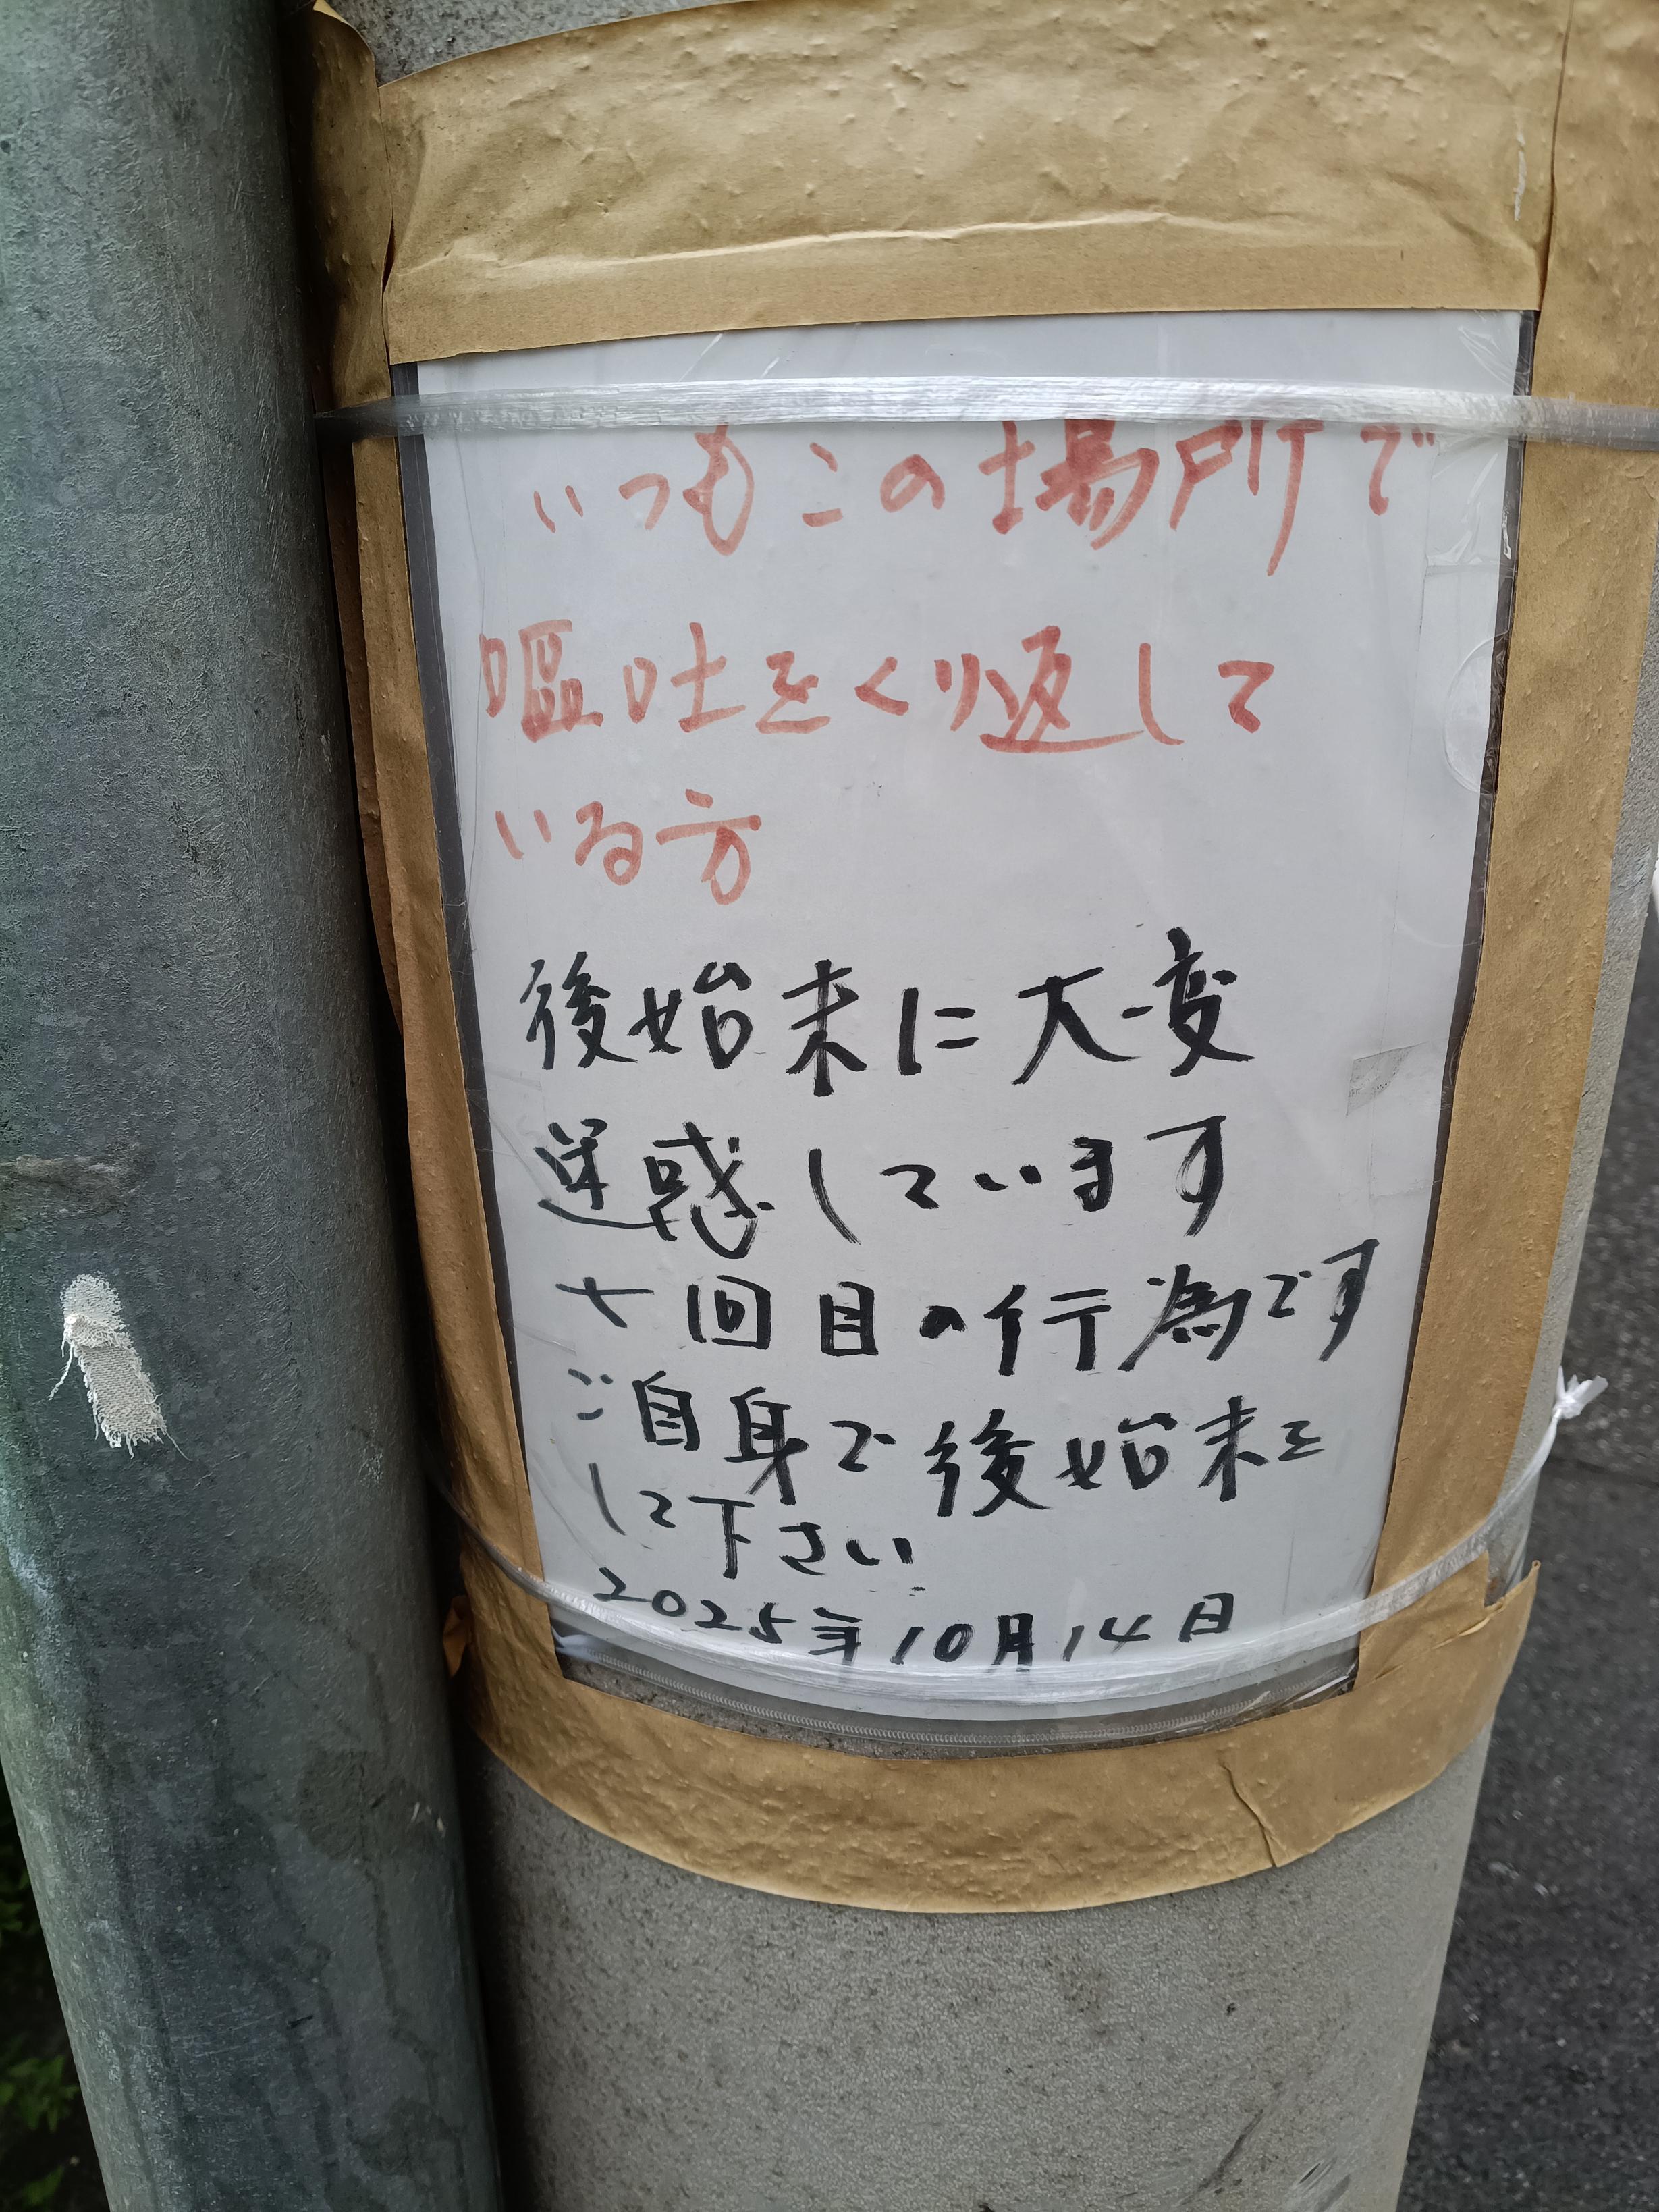 いつもこの場所で
嘔吐をくり返して
いる方
後始末に大変
迷惑しています
七回目の行為です
ご自身で後始末を
して下さい
2025年10月14日